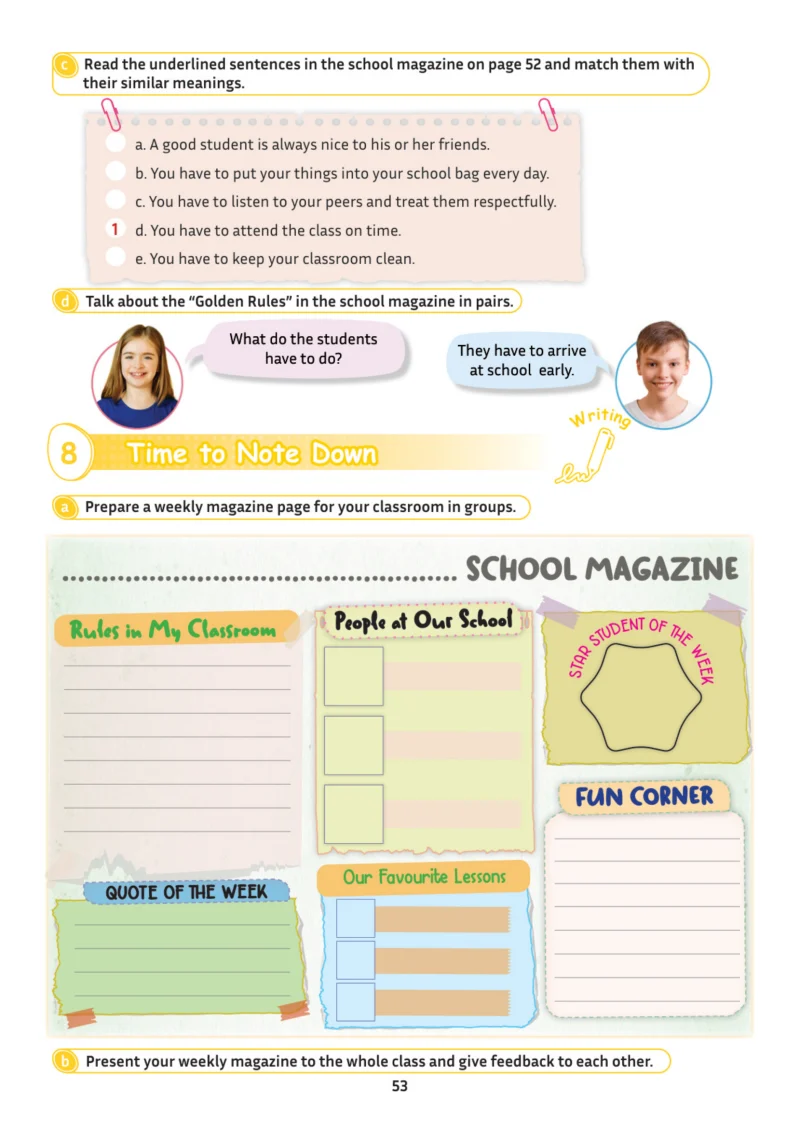 c Read the underlined sentences in the school magazine on page 52 and match them with
their similar meanings.
a. A good student is always nice to his or her friends.
b. You have to put your things into your school bag every day.
c. You have to listen to your peers and treat them respectfully.
1 d. You have to attend the class on time.
e. You have to keep your classroom clean.
d Talk about the “Golden Rules” in the school magazine in pairs.
What do the students
have to do?
They have to arrive
at school early.
Writing
8 Time to Note Down
a Prepare a weekly magazine page for your classroom in groups.
.................................................. SCHOOL MAGAZINE
Rules in My Classroom
People at Our School
STAR STUDENT OF THE WEEK
FUN CORNER
QUOTE OF THE WEEK
Our Favourite Lessons
b Present your weekly magazine to the whole class and give feedback to each other.
53